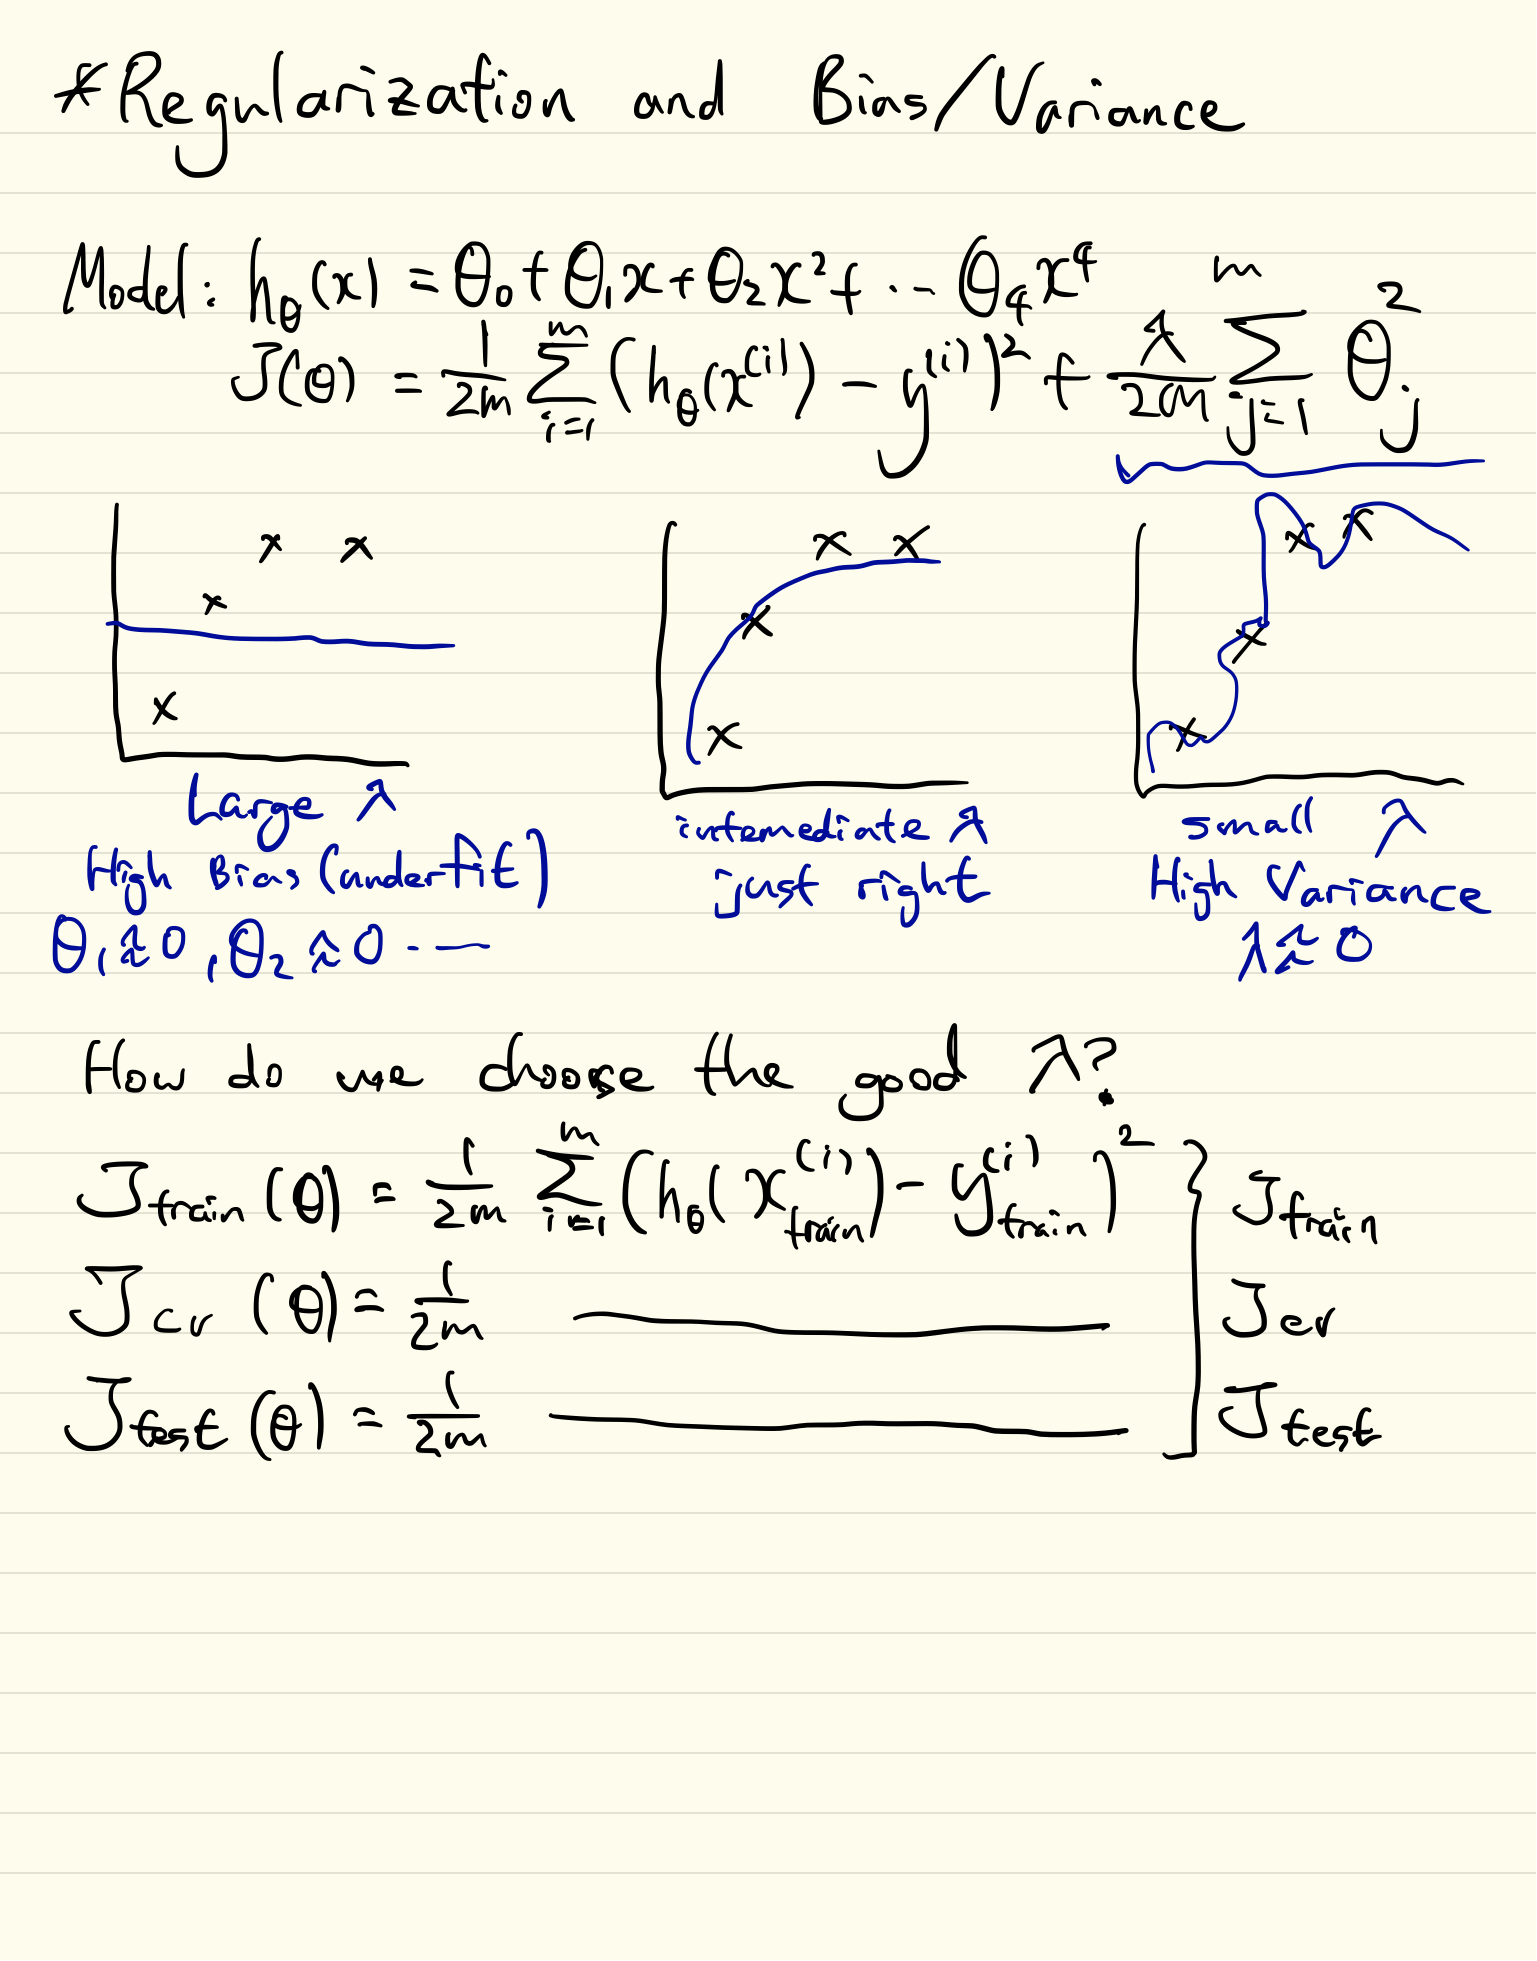 *Regularization and Bias/Variance
Model: hθ(x) = θ₀ + θ₁x + θ₂x² + ... θ₄x⁴
J(θ) = 1/2m Σ_{i=1}^{m} (hθ(x⁽ⁱ⁾) - y⁽ⁱ⁾)² + λ/2m Σ_{j=1}^{m} θⱼ²
Large λ
High Bias (underfit)
θ₁ ≈ 0, θ₂ ≈ 0 ...
intemediate λ
just right
small λ
High Variance
λ ≈ 0
How do we choose the good λ?
J_train (θ) = 1/2m Σ_{i=1}^{m} (hθ(x_train⁽ⁱ⁾) - y_train⁽ⁱ⁾)² } J_train
J_cv (θ) = 1/2m ——— J_cv
J_test (θ) = 1/2m ——— J_test